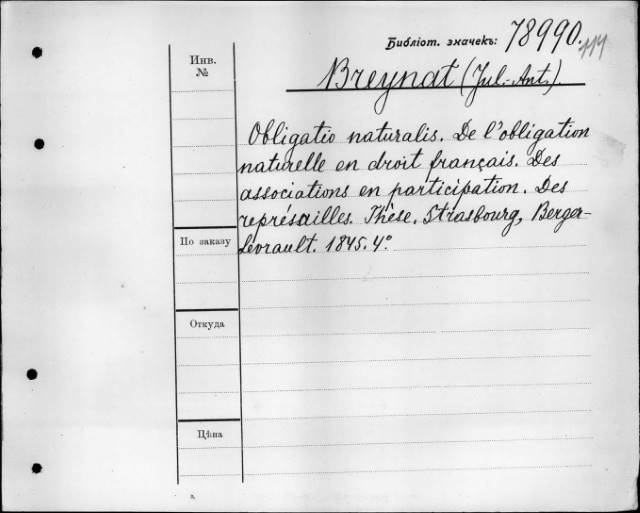 Библіот. значекъ: 78990.
119
Инв.
№
Breynat (Jul.-Ant.)
Obligatio naturalis. De l'obligation
naturelle en droit français. Des
associations en participation. Des
représailles. Thèse. Strasbourg, Berger-
Levrault. 1845. 4°
По заказу
Откуда
Цѣна